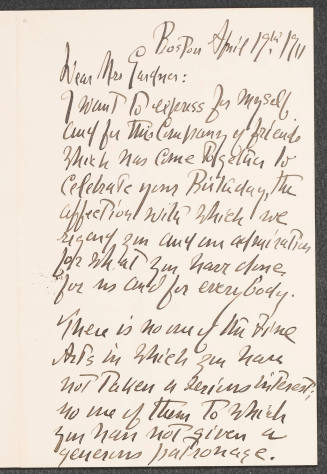 Boston April 19th 1911
Dear Mrs Gardner:
I want to express for myself
and for this Company of friends
which has come together to
celebrate your Birthday, the
affection with which we
regard you and our admiration
for what you have done,
for us and for everybody.
There is no one of the Fine
Arts in which you have
not taken a serious interest;
no one of them to which
you have not given a
generous patronage.